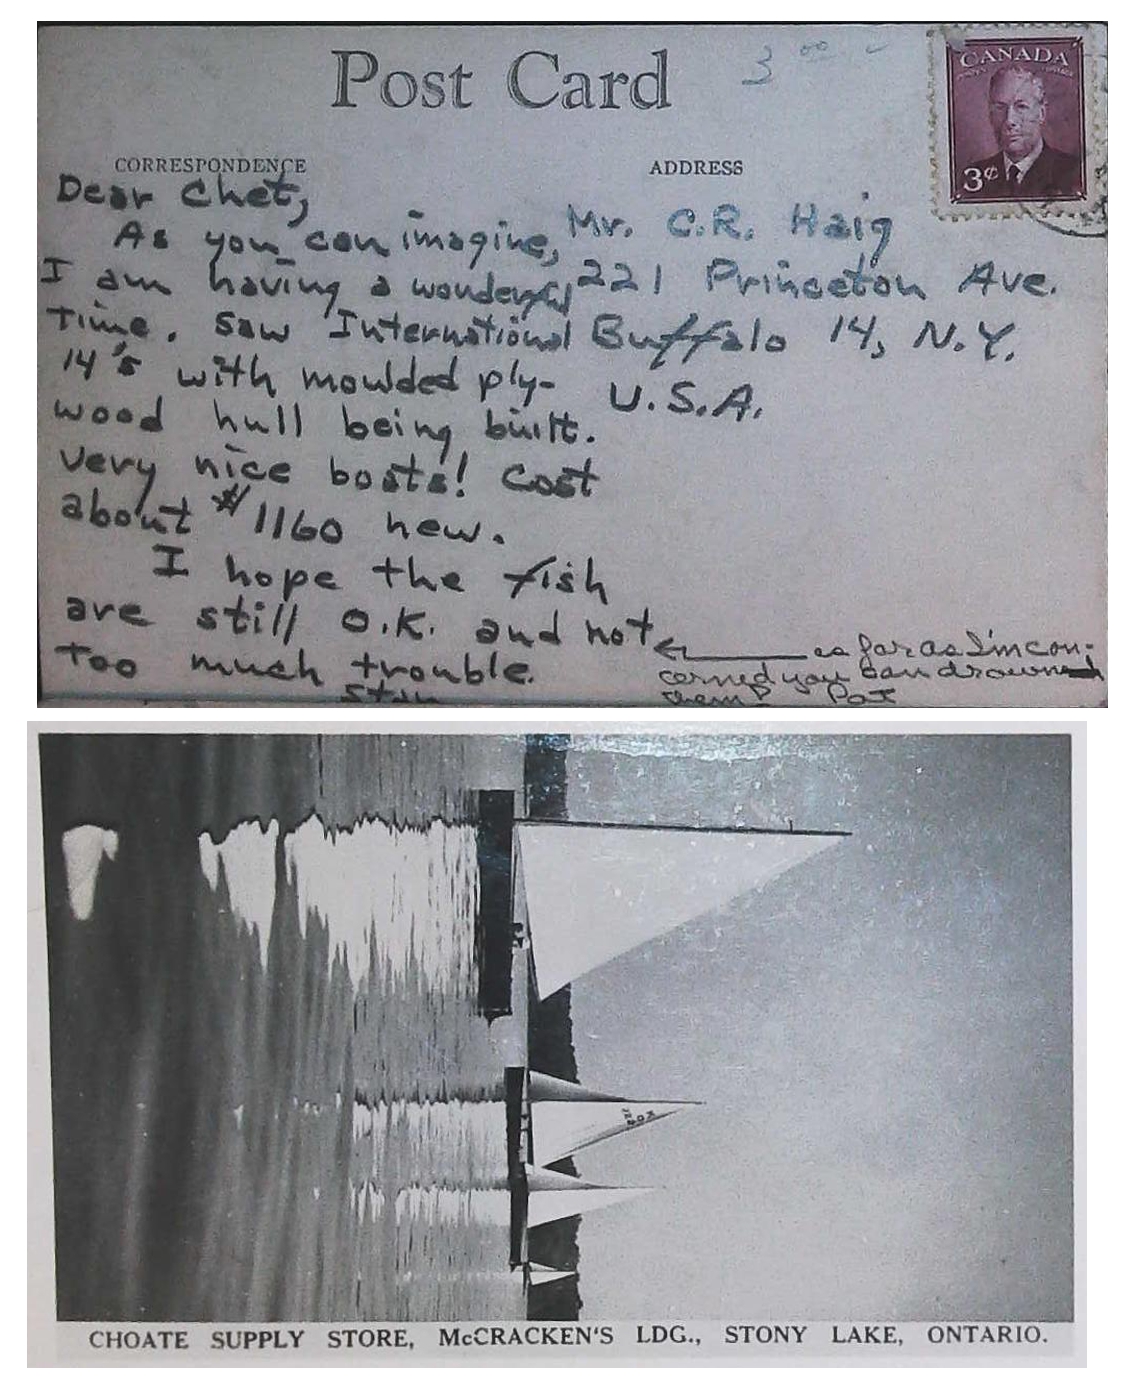 Post Card
3 00
CANADA
3¢
CORRESPONDENCE
ADDRESS
Dear Chet,
As you can imagine,
I am having a wonderful
time. Saw International
14's with moulded ply-
wood hull being built.
Very nice boats! Cost
about $1160 new.
I hope the fish
are still O.K. and not
too much trouble.
Stan
Mr. C.R. Haig
221 Princeton Ave.
Buffalo 14, N.Y.
U.S.A.
← as far as I'm con-
cerned you can drown
them! Pat
CHOATE SUPPLY STORE, McCRACKEN'S LDG., STONY LAKE, ONTARIO.